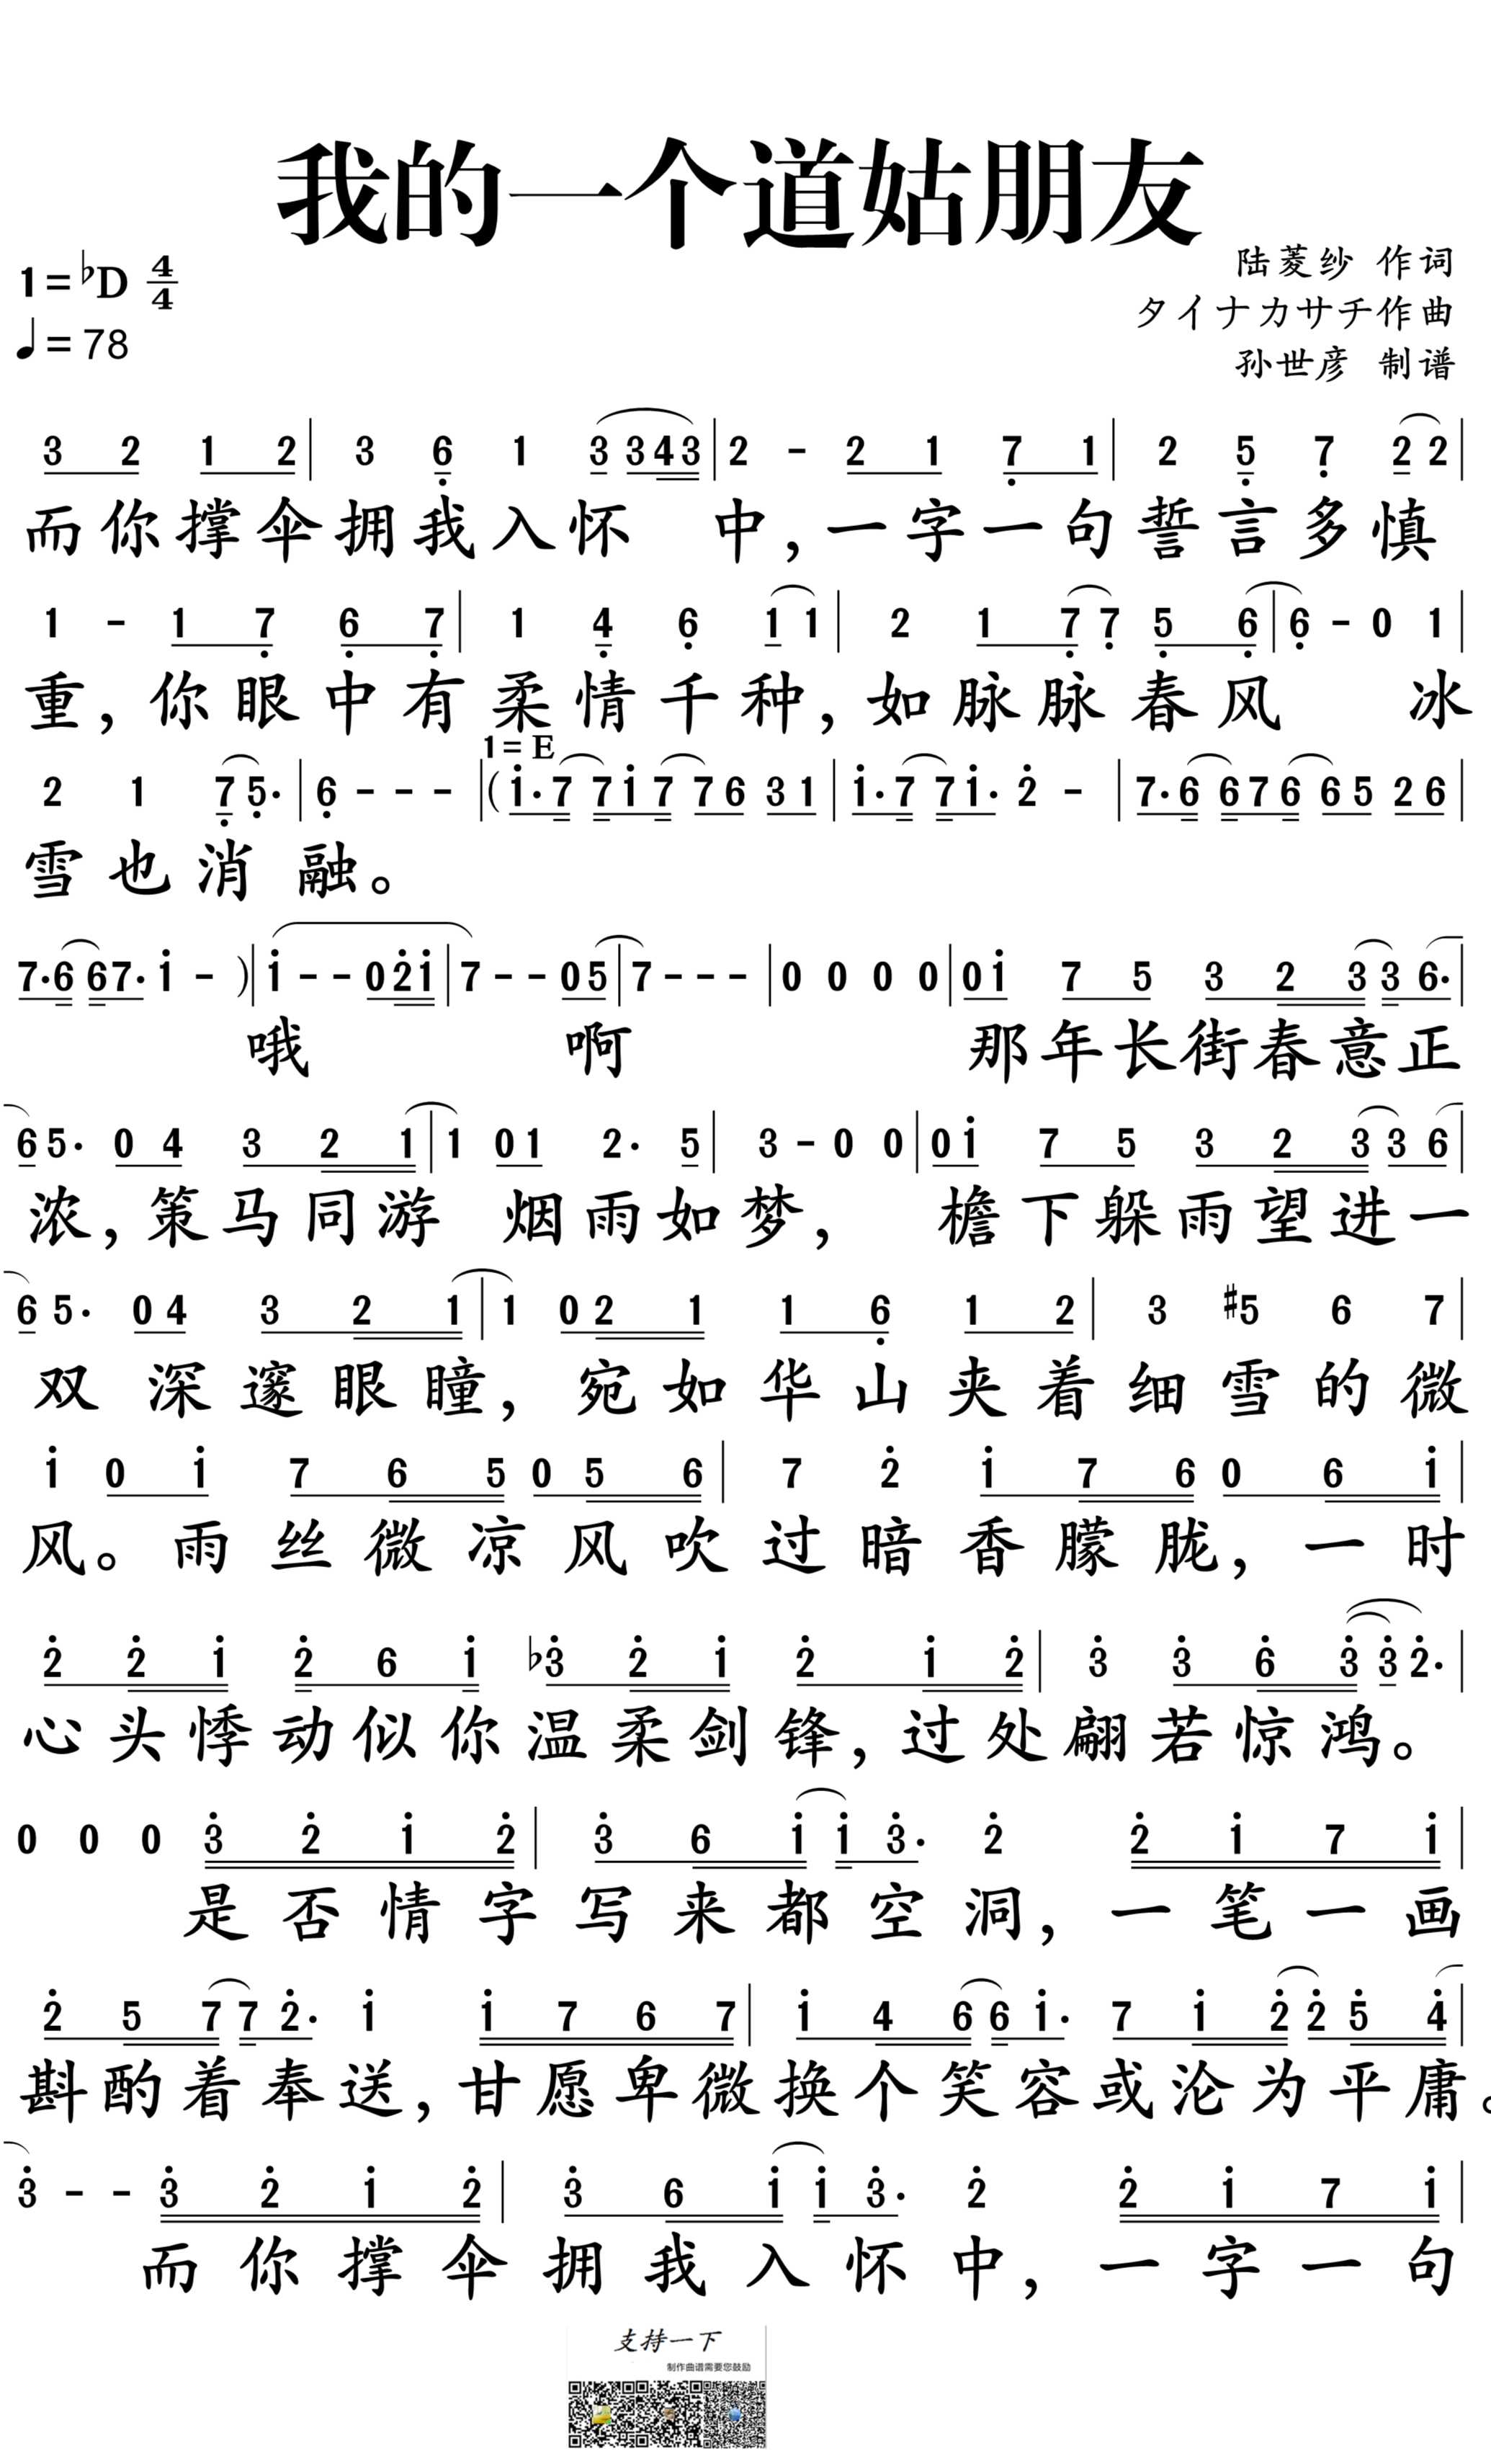 我的一个道姑朋友
陆菱纱 作词
1=♭D 4/4
タイナカサチ作曲
♩=78
孙世彦 制谱
3 2 1 2 | 3 6̣ 1 3 3 4 3 | 2 - 2 1 7̣ 1 | 2 5̣ 7̣ 2 2 |
而你撑伞拥我入怀 中,一字一句誓言多慎
1 - 1 7̣ 6̣ 7̣ | 1 4̣ 6̣ 1 1 | 2 1 7̣ 7̣ 5̣ 6̣ | 6̣ - 0 1 |
重,你眼中有柔情千种,如脉脉春风 冰
1=E
2 1 7̣ 5̣· | 6̣ - - - | (1̇· 7 7 1̇ 7 7 6 3 1 | 1̇· 7 7 1̇· 2̇ - | 7· 6 6 7 6 6 5 2 6 |
雪也消融。
7· 6 6 7· 1̇ - ) | 1̇ - - 0 2̇ 1̇ | 7 - - 0 5 | 7 - - - | 0 0 0 0 | 0 1̇ 7 5 3 2 3 3 6· |
哦 啊 那年长街春意正
6 5· 0 4 3 2 1 | 1 0 1 2· 5 | 3 - 0 0 | 0 1̇ 7 5 3 2 3 3 6 |
浓,策马同游 烟雨如梦, 檐下躲雨望进一
6 5· 0 4 3 2 1 | 1 0 2 1 1 6̣ 1 2 | 3 #5 6 7 |
双深邃眼瞳,宛如华山夹着细雪的微
1̇ 0 1̇ 7 6 5 0 5 6 | 7 2̇ 1̇ 7 6 0 6 1̇ |
风。雨丝微凉风吹过暗香朦胧,一时
2̇ 2̇ 1̇ 2̇ 6 1̇ ♭3̇ 2̇ 1̇ 2̇ 1̇ 2̇ | 3̇ 3̇ 6̇ 3̇ 3̇ 2̇· |
心头悸动似你温柔剑锋,过处翩若惊鸿。
0 0 0 3̇ 2̇ 1̇ 2̇ | 3̇ 6 1̇ 1̇ 3̇· 2̇ 2̇ 1̇ 7 1̇ |
是否情字写来都空洞,一笔一画
2̇ 5 7 7 2̇· 1̇ 1̇ 7 6 7 | 1̇ 4 6 6 1̇· 7 1̇ 2̇ 2̇ 5̇ 4̇ |
斟酌着奉送,甘愿卑微换个笑容或沦为平庸。
3̇ - - 3̇ 2̇ 1̇ 2̇ | 3̇ 6 1̇ 1̇ 3̇· 2̇ 2̇ 1̇ 7 1̇ |
而你撑伞拥我入怀中,一字一句
支持一下
制作曲谱需要您鼓励